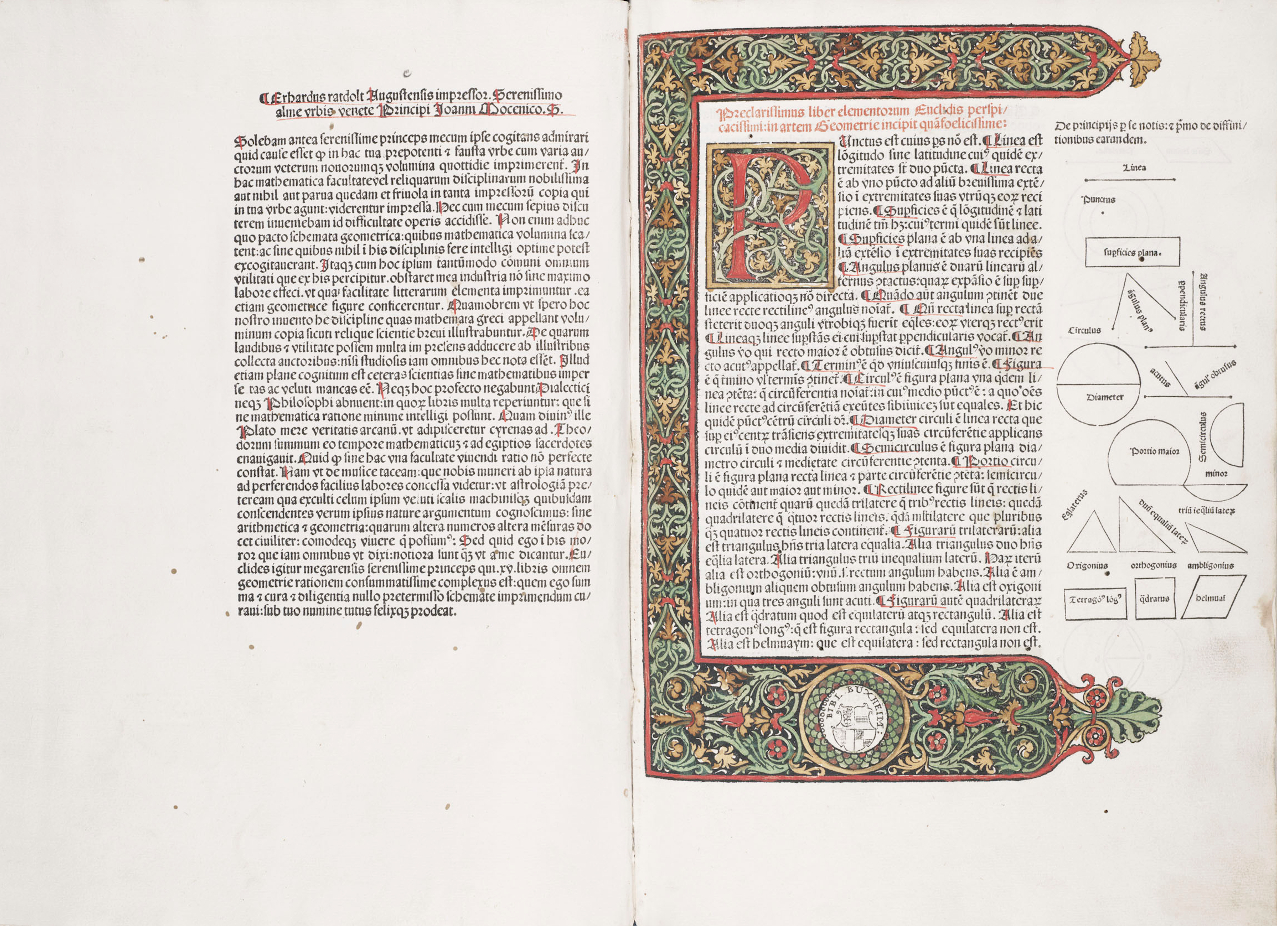 Erhardus ratdolt Augustensis impressor. Serenissimo
alme vrbis venete Principi Joanni Mocenico. S.
Solebam antea serenissime princeps mecum ipse cogitans admirari
quid cause esset ꝙ in hac tua prepotenti ⁊ fausta vrbe cum varia au/
ctorum veterum nouorumqꝫ volumina quottidie imprimerent̃. In
hac mathematica facultate vel reliquarum disciplinarum nobilissima
aut nihil aut parua quedam et friuola in tanta impressorũ copia qui
in tua vrbe agunt: viderentur impressa. Hec cum mecum sepius discu
terem inueniebam id difficultate operis accidisse. Non enim adhuc
quo pacto schemata geometrica: quibus mathematica volumina sca/
tent: ac sine quibus nihil ĩ his disciplinis fere intelligi optime potest
excogitauerant. Itaqꝫ cum hoc ipsum tantũmodo cõmuni omnium
vtilitati que ex his percipitur. obstaret mea industria nõ sine maximo
labore effeci. vt qua facilitate litterarum elementa imprimuntur. ea
etiam geometrice figure conficerentur. Quamobrem vt spero hoc
nostro inuento he discipline quas mathemata greci appellant volu/
minum copia sicuti relique scientie breui illustrabuntur. De quarum
laudibus ⁊ vtilitate possem multa im presens adducere ab illustribus
collecta auctoribus: nisi studiosis iam omnibus hec nota essẽt. Illud
etiam plane cognitum est ceteras scientias sine mathematibus imper
fectas ac veluti mancas eẽ. Neqꝫ hoc profecto negabunt Dialectici
neqꝫ Philosophi abnuent: in quoꝝ libris multa reperiuntur: que si
ne mathematica ratione minime intelligi possunt. Quam diuinꝰ ille
Plato mere veritatis arcanũ. vt adipisceretur cyrenas ad . Theo/
dorum summum eo tempore mathematicuꝫ ⁊ ad egiptios sacerdotes
enauigauit. Quid ꝙ sine hac vna facultate viuendi ratio nõ perfecte
constat. Nam vt de musice taceam: que nobis muneri ab ipsa natura
ad perferendos facilius labores concessa videtur: vt astrologiã pre/
teream qua exculti celum ipsum veluti scalis machinisqꝫ quibusdam
conscendentes verum ipsius nature argumentum cognoscimus: sine
arithmetica ⁊ geometria: quarum altera numeros altera mẽsuras do
cet ciuiliter: comodeqꝫ viuere q̃ possumꝰ: Sed quid ego ĩ his mo/
ror que iam omnibus vt dixi: notiora sunt qꝫ vt a me dicantur. Eu/
clides igitur megarensis serenissime princeps qui. xv. libris omnem
geometrie rationem consummatissime complexus est: quem ego sum
ma ⁊ cura ⁊ diligentia nullo pretermisso schemate imprimendum cu/
raui: sub tuo numine tutus felixqꝫ prodeat.
Preclarissimus liber elementorum Euclidis perspi/
cacissimi: in artem Geometrie incipit quãfoelicissime:
Punctus est cuius ps nõ est. Linea est
lõgitudo sine latitudine cuiꝰ quidẽ ex/
tremitates st̃ duo pũcta. Linea recta
ẽ ab vno pũcto ad aliũ breuissima extẽ/
sio ĩ extremitates suas vtrũqꝫ eoꝝ reci
piens. Supficies ẽ q̃ lõgitudinẽ ⁊ lati
tudinẽ tm̃ hꝫ: cuiꝰ termi quidẽ sũt linee.
Supficies plana ẽ ab vna linea ad a/
liã extẽsio ĩ extremitates suas recipiẽs
Angulus planus ẽ duarũ linearũ al/
ternus ꝯtactus: quaꝝ expãsio ẽ sup sup/
ficiẽ applicatioqꝫ nõ directa. Quãdo aũt angulum ꝯtinẽt due
linee recte rectilineꝰ angulus noiat̃. Qñ recta linea sup rectã
steterit duoqꝫ anguli vtrobiqꝫ fuerit eq̃les: eoꝝ vterqꝫ rectꝰ erit
Lineaqꝫ linee supstãs ei cui supstat ppendicularis vocat̃. An
gulus vo qui recto maior ẽ obtusus dicit̃. Angulꝰ vo minor re
cto acutꝰ appellat̃. Terminꝰ ẽ qd vniuscuiusqꝫ finis ẽ. Figura
ẽ q̃ tmino vl terminis ꝯtinet̃. Circulꝰ ẽ figura plana vna qdem li/
nea ꝯtẽta: q̃ circũferentia noiat̃: in cuiꝰ medio pũctꝰ ẽ: a quo oẽs
linee recte ad circũferẽtiã exeũtes sibiinuicẽ sut equales. Et hic
quidẽ pũctꝰ cẽtrũ circuli dr̃. Diameter circuli ẽ linea recta que
sup eiꝰ centꝝ trãsiens extremitatesqꝫ suas circũferẽtie applicans
circulũ ĩ duo media diuidit. Semicirculus ẽ figura plana dia/
metro circuli ⁊ medietate circũferentie ꝯtenta. Portio circu/
li ẽ figura plana recta linea ⁊ parte circũferẽtie ꝯtẽta: semicircu/
lo quidẽ aut maior aut minor. Rectilinee figure sũt q̃ rectis li/
neis cõtinent̃ quarũ quedã trilatere q̃ tribꝰ rectis lineis: quedã
quadrilatere q̃ qtuor rectis lineis. qdã mltilatere que pluribus
qꝫ quatuor rectis lineis continent̃. Figurarũ trilaterarũ: alia
est triangulus hñs tria latera equalia. Alia triangulus duo hñs
eq̃lia latera. Alia triangulus triũ inequalium laterũ. Haꝝ iterũ
alia est orthogoniũ: vnũ. s. rectum angulum habens. Alia ẽ am/
bligonium aliquem obtusum angulum habens. Alia est oxigoni
um: in qua tres anguli sunt acuti. Figurarũ autẽ quadrilateraꝝ
Alia est qdratum quod est equilaterũ atqꝫ rectangulũ. Alia est
tetragonꝰ longꝰ: q̃ est figura rectangula: sed equilatera non est.
Alia est helmuaym: que est equilatera: sed rectangula non est.
De principijs p se notis: ⁊ pmo de diffini/
tionibus earandem.
Linea
Punctus
supficies plana.
ãgulus planꝰ
ppendicularis
angulus rectus
Circulus
Diameter
acutus
ãgulꝰ obtusus
Portio maior
Semicirculus
minor
Eq̃laterus
Duũ equaliũ lateꝝ
triũ ĩeq̃liũ lateꝝ
Oxigonius
orthogonius
ambligonius
Tetragõꝰ lõgꝰ
q̃dratus
helmuaĩ
BIBL. BUXHEIM: